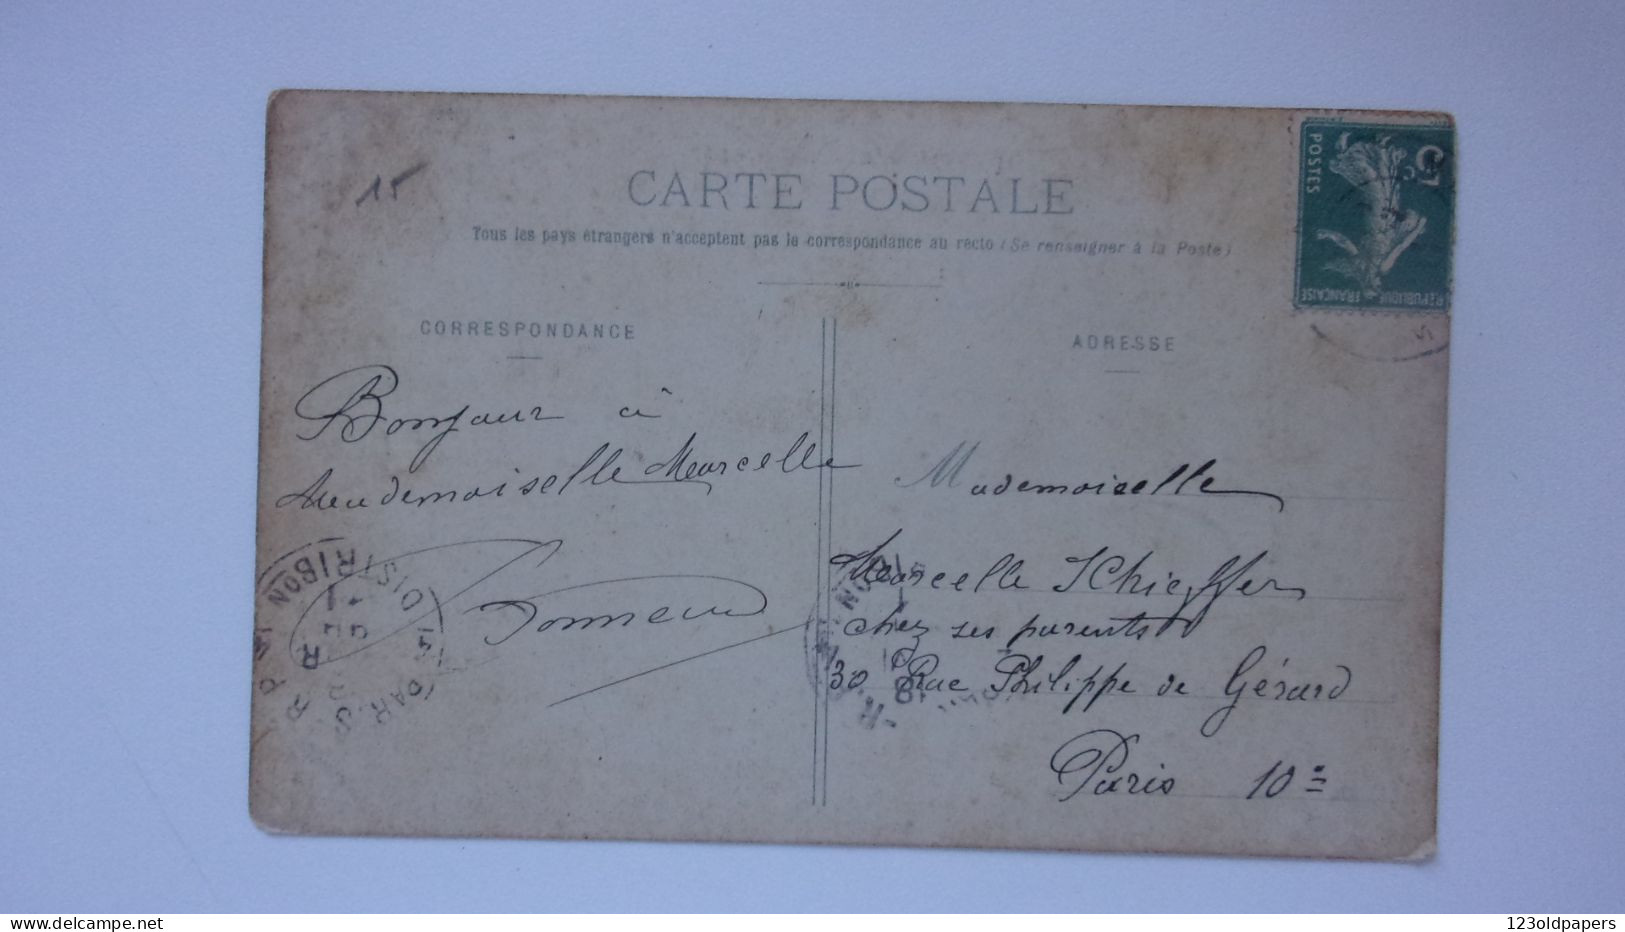 15
CARTE POSTALE
Tous les pays étrangers n'acceptent pas la correspondance au recto (Se renseigner à la Poste)
CORRESPONDANCE
Bonjour à
Mademoiselle Marcelle
ADRESSE
Mademoiselle
Marcelle Schieffer
chez ses parents
30 Rue Philippe de Gérard
Paris 10e
5c
POSTES
RÉPUBLIQUE FRANÇAISE
RIBON
PAR
delcampe.net
123oldpapers